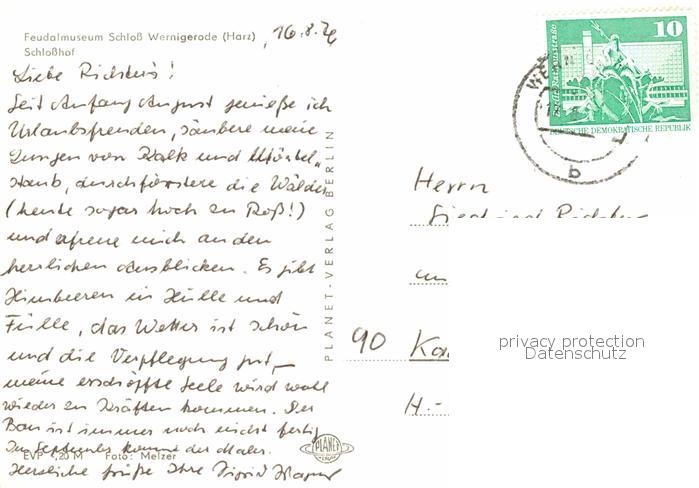 Feudalmuseum Schloß Wernigerode (Harz)
Schloßhof
16.8.76
Liebe Richters!
Seit Anfang August genieße ich
Urlaubsfreuden, säubere meine
Lungen von Kalk und Mörtel-
staub, durchförstere die Wälder
(heute sogar hoch zu Roß!)
und erfreue mich an den
herrlichen Ausblicken. Es gibt
Himbeeren in Hülle und
Fülle, das Wetter ist schön
und die Verpflegung gut, –
meine erschöpfte Seele wird wohl
wieder zu Kräften kommen. Der
Bau ist immer noch nicht fertig
Im September kommt der Maler.
Herzliche Grüße Ihre Sigrid Wagner
EVP -,20 M Foto: Melzer
PLANET-VERLAG BERLIN
PLANET
10
DEUTSCHE DEMOKRATISCHE REPUBLIK
b
Herrn
Siegfried Richter
90
H.-
privacy protection
Datenschutz